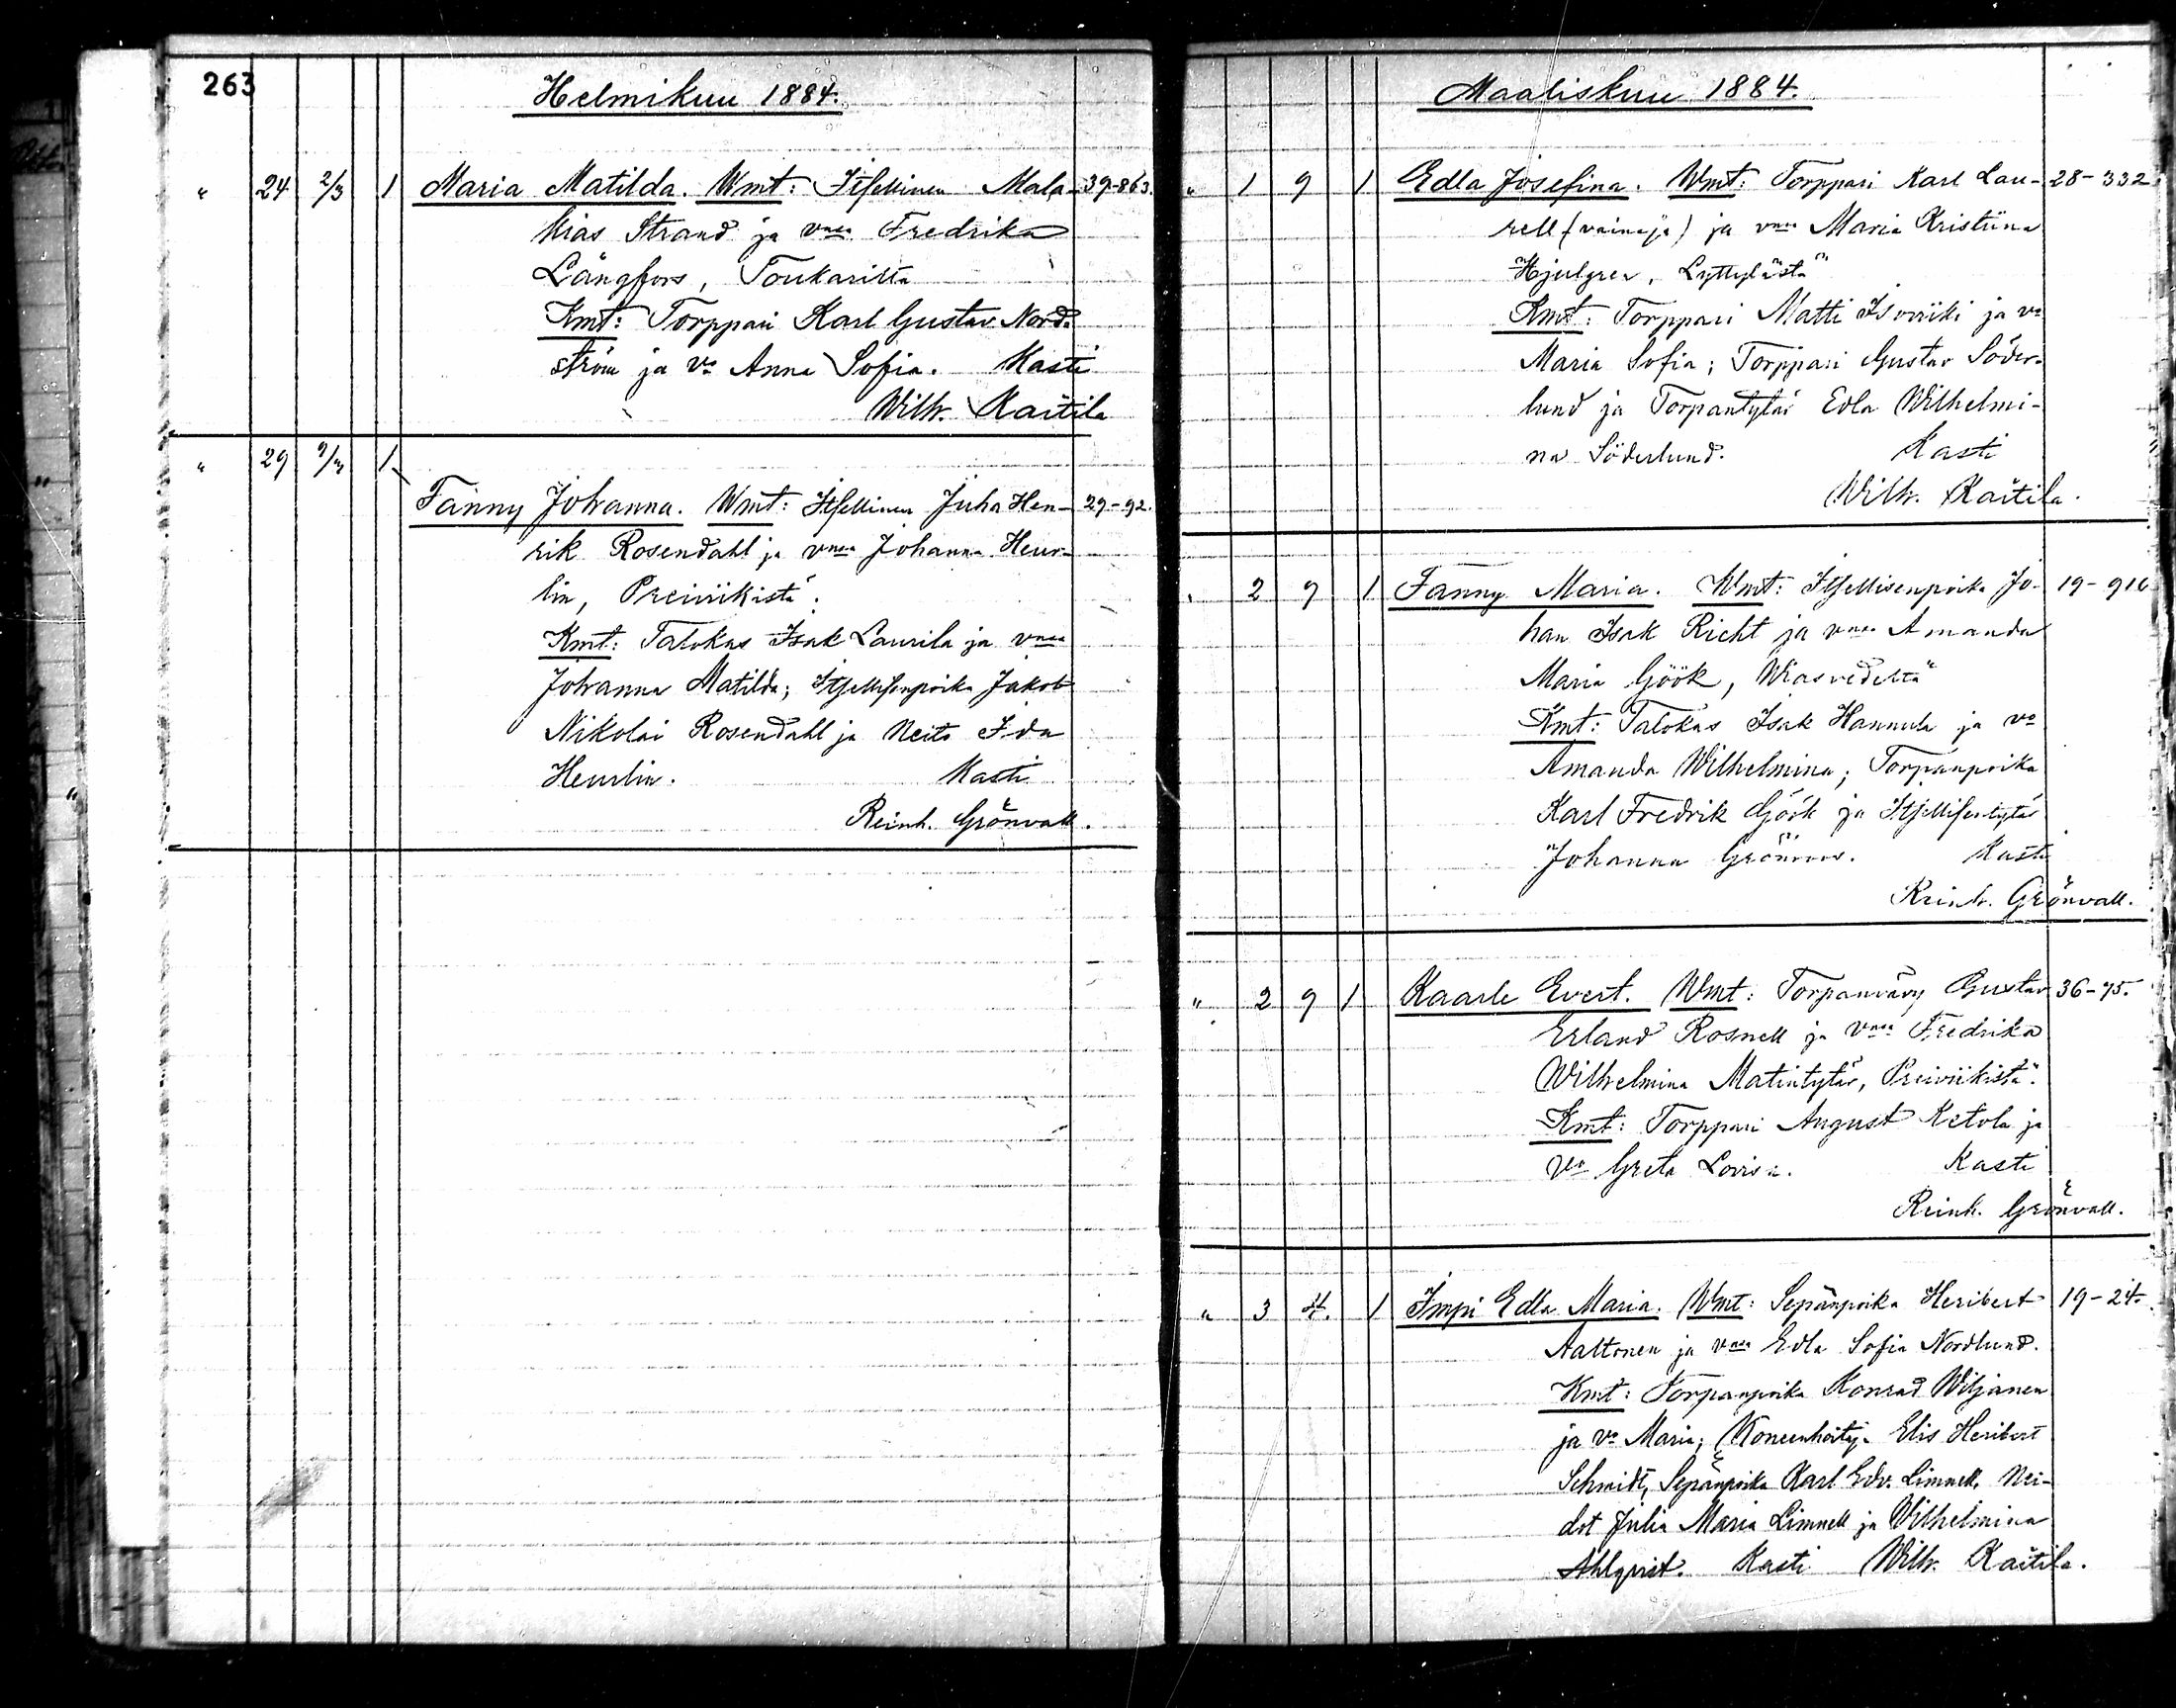 263
Helmikuu 1884.
" 24 2/3 1 Maria Matilda. Wmt: Itsellinen Mala- 39-863.
kias Strand ja vmsa Fredrika
Långfors, Toukarilta
Kmt: Torppari Karl Gustav Nord-
ström ja va Anna Sofia. Kasti
Wilh. Kaitila
" 29 9/3 1
Fanny Johanna. Wmt: Itsellinen Juha Hen- 29-92.
rik Rosendahl ja vmsa Johanna Heur-
lin, Preiviikistä.
Kmt: Talokas Isak Laurila ja vmsa
Johanna Matilda; Itsellisenpoika Jakob
Nikolai Rosendahl ja Neito Ida
Heurlin. Kasti
Reinh. Grönvall.
Maaliskuu 1884.
" 1 9 1 Edla Josefina. Wmt: Torppari Karl Lau- 28-332
rell (vainaja) ja vmsa Maria Kristiina
Hjulgren, Lyttylästä
Kmt: Torppari Matti Isoviiki ja va
Maria Sofia; Torppari Gustav Söder-
lund ja Torpantytär Edla Wilhelmi-
na Söderlund. Kasti
Wilh. Kaitila.
" 2 9 1 Fanny Maria. Wmt: Itsellisenpoika Jo- 19-916
han Isak Richt ja vmsa Amanda
Maria Göök, Wiasvedeltä
Kmt: Talokas Isak Hannula ja va
Amanda Wilhelmina; Torpanpoika
Karl Fredrik Göök ja Itsellisentytär
Johanna Grönroos. Kasti
Reinh. Grönvall.
" 2 9 1 Kaarle Evert. Wmt: Torpanvävy Gustav 36-75.
Erland Rosnell ja vmsa Fredrika
Wilhelmina Matintytär, Preiviikistä.
Kmt: Torppari August Ketola ja
va Greta Lovisa. Kasti
Reinh. Grönvall.
" 3 4. 1 Impi Edla Maria. Wmt: Sepänpoika Heribert 19-24.
Aaltonen ja vmsa Edla Sofia Nordlund.
Kmt: Torpanpoika Konrad Wiljanen
ja va Maria; Koneenhoitaja Elis Heribert
Schmidt, Sepänpoika Karl Edv. Limnell, Nei-
dot Julia Maria Limnell ja Wilhelmina
Ahlqvist. Kasti Wilh. Kaitila.